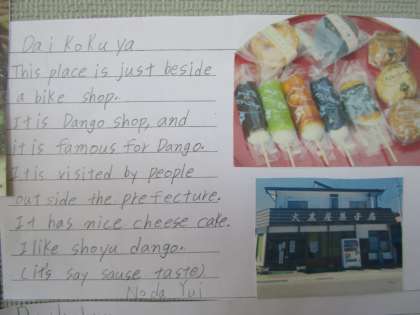 Daikokuya
This place is just beside
a bike shop.
It is Dango shop, and
it is famous for Dango.
It is visited by people
outside the prefecture.
It has nice cheese cake.
I like shoyu dango.
(it's say sause taste)
Noda Yui
大黒屋菓子店